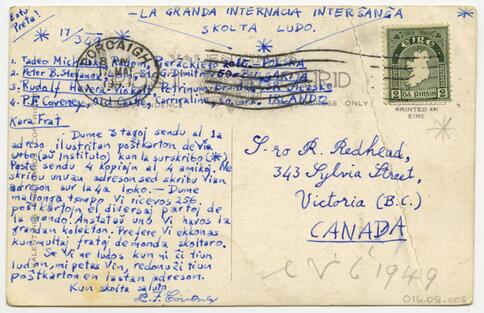 Estu Preta!
— LA GRANDA INTERNACIA INTERŜANĜA
SKOLTA LUDO. —
17/3
PORCAIG
ÉIRE
2
2
DÁ PINGIN
PRINTED IN
EIRE
1. Tadeo Michalski, Radom, Pierackiego 20
2. Peter B. Stefanov, St. G. Dimitrov 60 - BULGARIJA
3. Rudolf Hevera - Vinkelt, Petrinum, Slezsko
4. P.F. Coveney, Old Castle, Carrigaline, Co. Cork, IRLANDO
Kara Frat
Dume 3 tagoj sendu al la 1a
adreso ilustritan poŝtkarton de via
urbo (aŭ instituto) kun la surskribo (*).
Poste sendu 4 kopiajn al 4 amikoj. Ne
skribu muan adreson sed skribu vian
adreson sur la 4a loko. — Dume
mallonga tempo Vi ricevos 256
poŝtkartojn el diversaj partoj de
la mondo. Anstataŭ unu Vi havos la
grandan kolekton. Prefere Vi ekkonas
kun multaj fratoj de monda skoltaro.
Se Vi ne ludos kun ni ĉi tiun
ludon, mi petas Vin, redonu ĉi tiun
poŝtkarton en lastan adreson.
Kun skolta saluto
P.F. Coveney
S-ro R. Redhead,
343 Sylvia Street,
Victoria (B.C.)
CANADA
1949
016.02.003